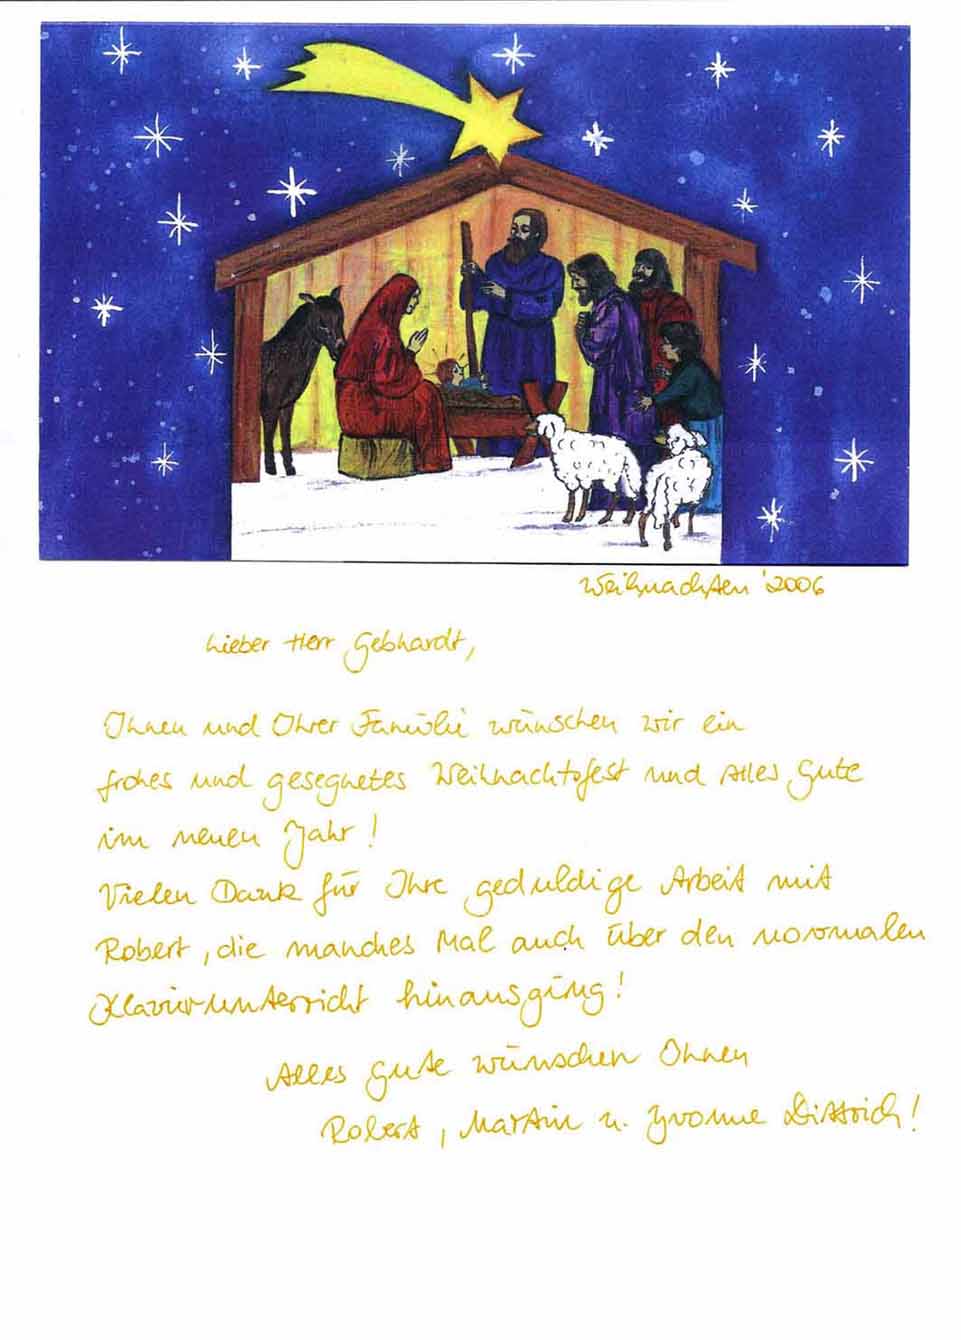 Weihnachten '2006
Lieber Herr Gebhardt,
Ihnen und Ihrer Familie wünschen wir ein
frohes und gesegnetes Weihnachtsfest und Alles Gute
im neuen Jahr!
Vielen Dank für Ihre geduldige Arbeit mit
Robert, die manches Mal auch über den normalen
Klavierunterricht hinausging!
Alles gute wünschen Ihnen
Robert, Martin u. Yvonne Dittrich!